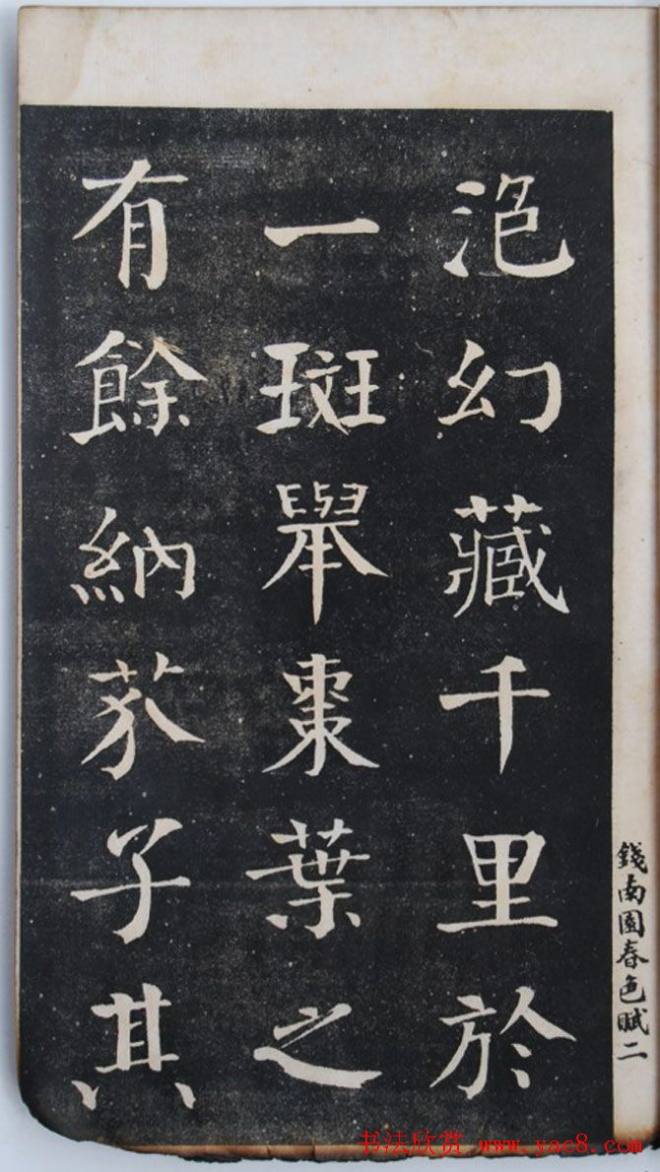 泡幻藏千里於
一斑舉棗葉之
有餘納芥子其
錢南園春色賦二
书法欣赏 www.yac8.com